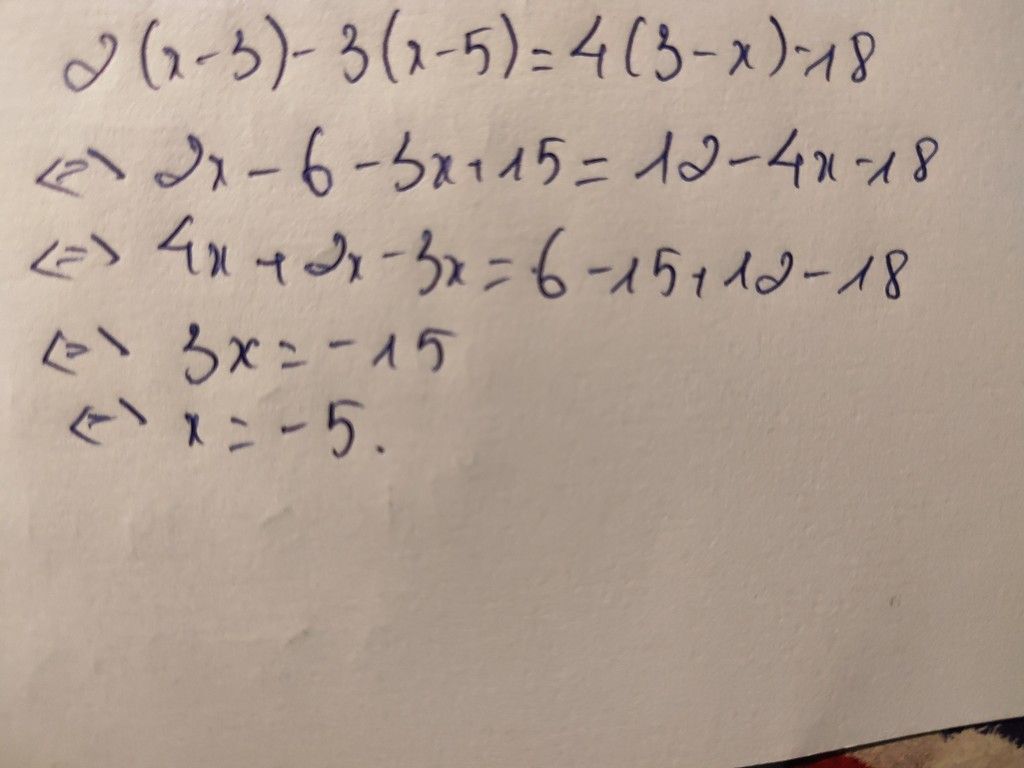 2(x-3)-3(x-5)=4(3-x)-18
<=> 2x-6-3x+15=12-4x-18
<=> 4x+2x-3x=6-15+12-18
<=> 3x=-15
<=> x=-5.